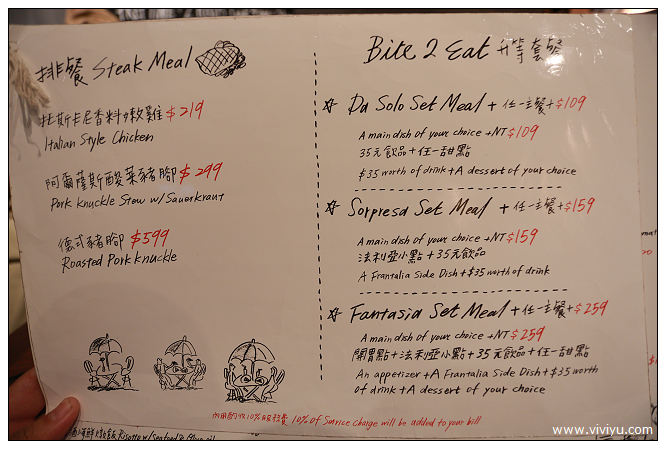 排餐 Steak Meal
托斯卡尼香料嫩雞 $219
Italian Style Chicken
阿爾薩斯酸菜豬腳 $299
Pork Knuckle Stew w/Sauerkraut
德式豬腳 $599
Roasted Pork Knuckle
Bite 2 Eat 升等套餐
Da Solo Set Meal + 任一主餐 + $109
A main dish of your choice +NT $109
35元飲品+任一甜點
$35 worth of drink + A dessert of your choice
Sorpresa Set Meal + 任一主餐 + $159
A main dish of your choice +NT $159
法利亞小點+35元飲品
A Frantalia Side Dish + $35 worth of drink
Fantasia Set Meal + 任一主餐 + $259
A main dish of your choice +NT $259
開胃點+法利亞小點+35元飲品+任一甜點
An appetizer + A Frantalia Side Dish + $35 worth
of drink + A dessert of your choice
內用酌收10%服務費 10% of Survice Charge will be added to your bill
海鮮燉飯 Risotto w/Seafood &
www.viviyu.com